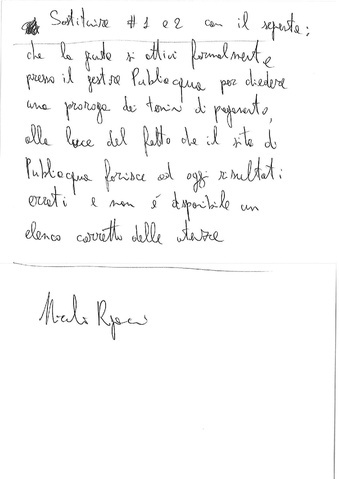 Sostituire #1 e 2 con il seguente:
che la giunta si attivi formalmente
presso il gestore Publiacqua per chiedere
una proroga dei termini di pagamento,
alla luce del fatto che il sito di
Publiacqua fornisce ad oggi risultati
errati e non é disponibile un
elenco corretto delle utenze